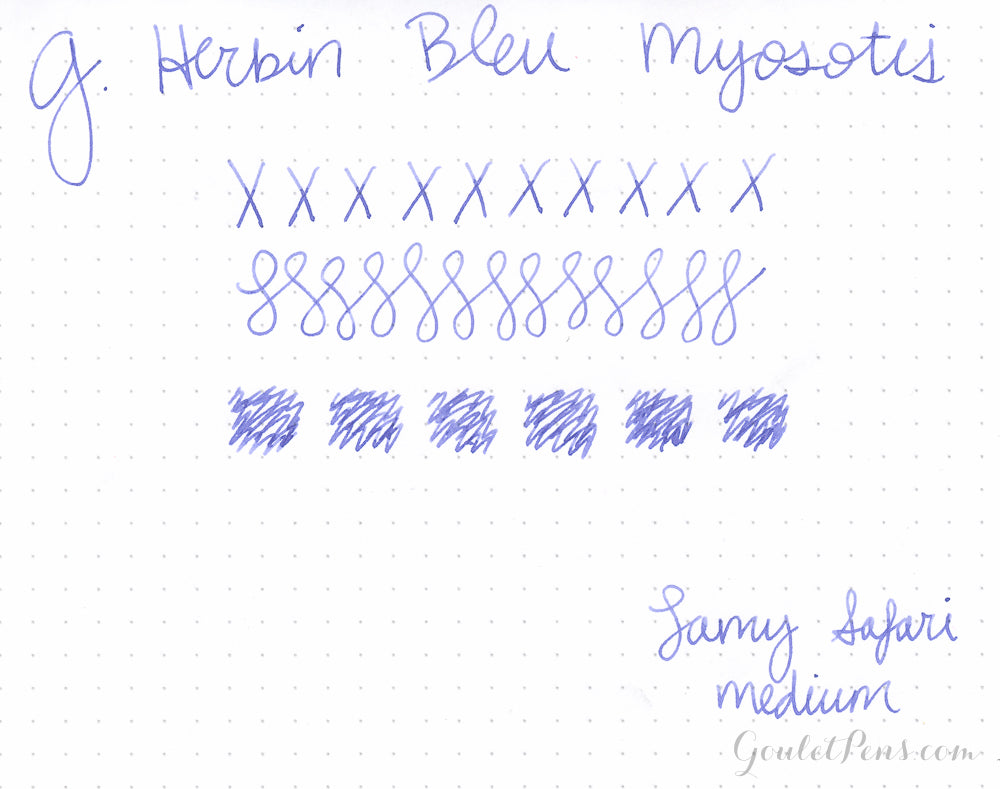 g. Herbin Bleu Myosotis
X X X X X X X X X X
Lamy Safari
medium
GouletPens.com